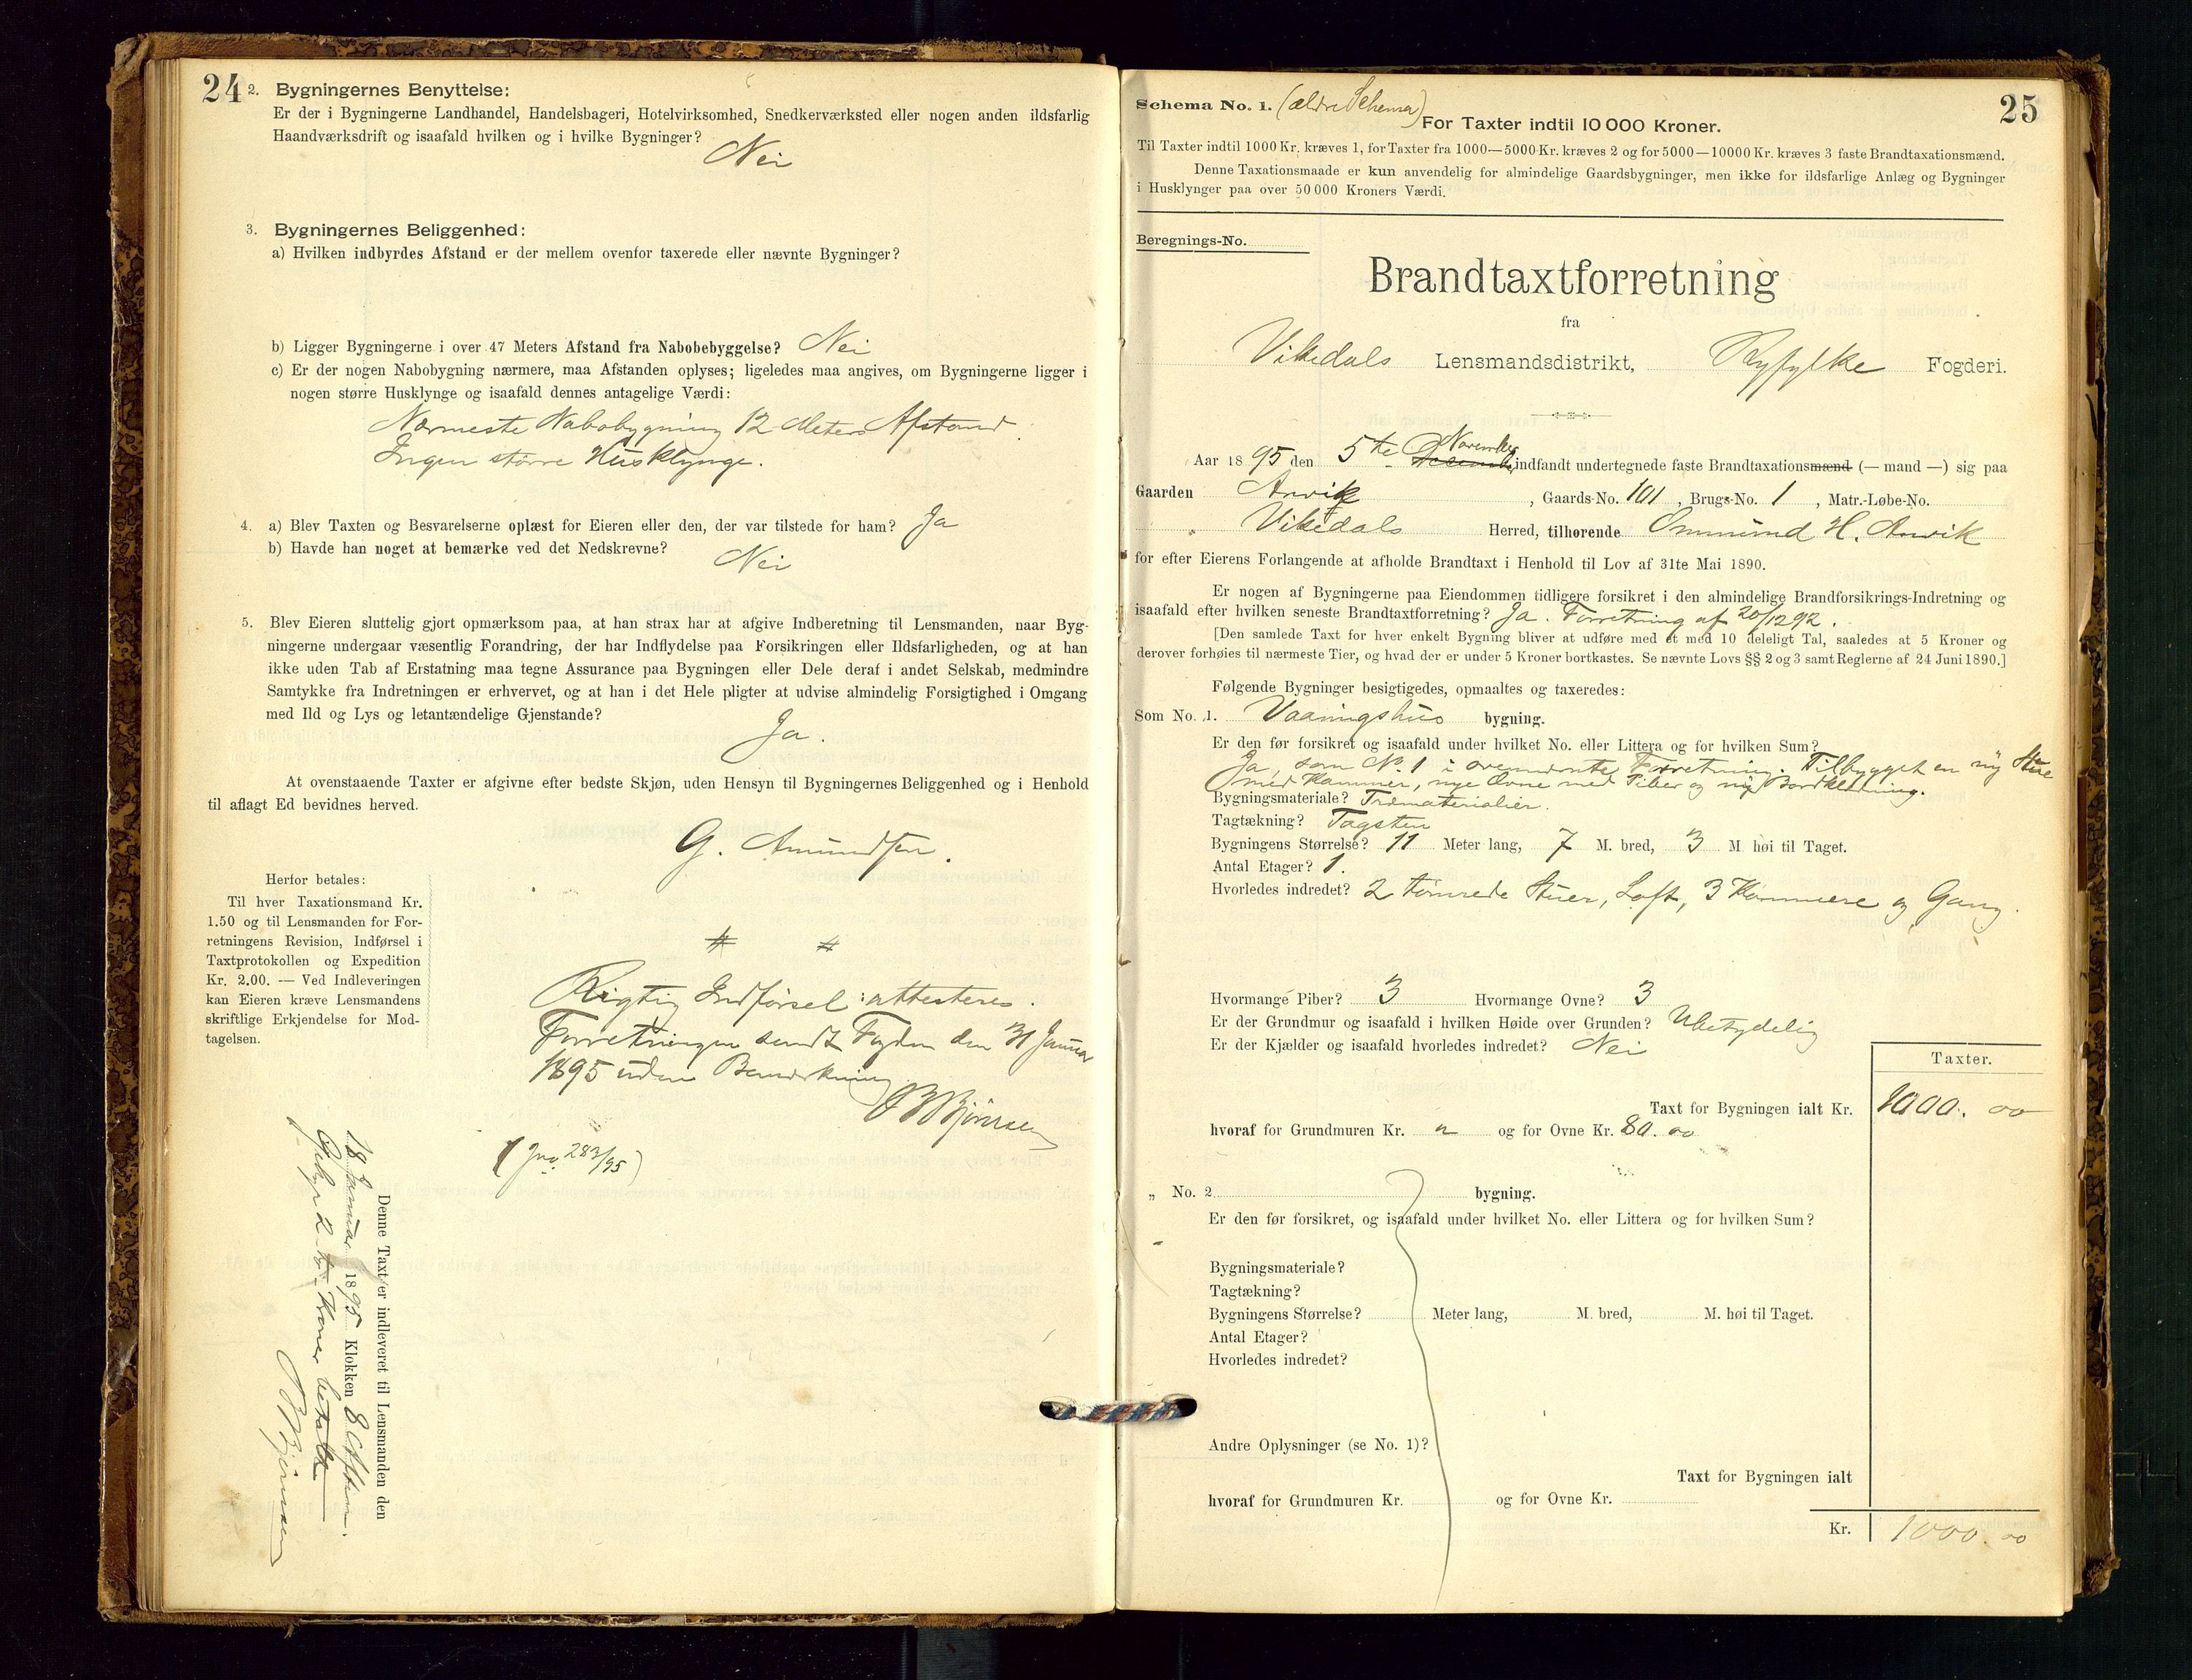 24
2. Bygningernes Benyttelse:
Er der i Bygningerne Landhandel, Handelsbageri, Hotelvirksomhed, Snedkerværksted eller nogen anden ildsfarlig
Haandværksdrift og isaafald hvilken og i hvilke Bygninger?
Nei
3. Bygningernes Beliggenhed:
a) Hvilken indbyrdes Afstand er der mellem ovenfor taxerede eller nævnte Bygninger?
b) Ligger Bygningerne i over 47 Meters Afstand fra Nabobebyggelse? Nei
c) Er der nogen Nabobygning nærmere, maa Afstanden oplyses; ligeledes maa angives, om Bygningerne ligger i
nogen større Husklynge og isaafald dennes antagelige Værdi:
Nærmeste Nabobygning 12 Meters Afstand.
Ingen større Husklynge.
4. a) Blev Taxten og Besvarelserne oplæst for Eieren eller den, der var tilstede for ham? Ja
b) Havde han noget at bemærke ved det Nedskrevne?
Nei
5. Blev Eieren sluttelig gjort opmærksom paa, at han strax har at afgive Indberetning til Lensmanden, naar Byg-
ningerne undergaar væsentlig Forandring, der har Indflydelse paa Forsikringen eller Ildsfarligheden, og at han
ikke uden Tab af Erstatning maa tegne Assurance paa Bygningen eller Dele deraf i andet Selskab, medmindre
Samtykke fra Indretningen er erhvervet, og at han i det Hele pligter at udvise almindelig Forsigtighed i Omgang
med Ild og Lys og letantændelige Gjenstande?
Ja.
At ovenstaaende Taxter er afgivne efter bedste Skjøn, uden Hensyn til Bygningernes Beliggenhed og i Henhold
til aflagt Ed bevidnes herved.
G. Amundsen.
Herfor betales:
Til hver Taxationsmand Kr.
1.50 og til Lensmanden for For-
retningens Revision, Indførsel i
Taxtprotokollen og Expedition
Kr. 2.00. — Ved Indleveringen
kan Eieren kræve Lensmandens
skriftlige Erkjendelse for Mod-
tagelsen.
Rigtig Indførsel attesteres.
Forretningen sendt Fogden den 31 Januar
1895 uden Bemærkning
(Jno. 283/95)
Denne Taxt er indleveret til Lensmanden den
18 Januar 1895 Klokken 8 Eftm.
Gebyr 2 to Kroner betalt
25
Schema No. 1. (ældre Schema)
For Taxter indtil 10 000 Kroner.
Til Taxter indtil 1000 Kr. kræves 1, for Taxter fra 1000—5000 Kr. kræves 2 og for 5000—10000 Kr. kræves 3 faste Brandtaxationsmænd.
Denne Taxationsmaade er kun anvendelig for almindelige Gaardsbygninger, men ikke for ildsfarlige Anlæg og Bygninger
i Husklynger paa over 50 000 Kroners Værdi.
Beregnings-No.
Brandtaxtforretning
fra
Vikedals Lensmandsdistrikt, Ryfylke Fogderi.
November
Aar 1895 den 5te indfandt undertegnede faste Brandtaxationsmænd (— mand —) sig paa
Gaarden Arvik, Gaards-No. 101, Brugs-No. 1, Matr.-Løbe-No.
Vikedals Herred, tilhørende Ommund H. Arvik
for efter Eierens Forlangende at afholde Brandtaxt i Henhold til Lov af 31te Mai 1890.
Er nogen af Bygningerne paa Eiendommen tidligere forsikret i den almindelige Brandforsikrings-Indretning og
isaafald efter hvilken seneste Brandtaxtforretning? Ja. Forretning af 20/12 92.
[Den samlede Taxt for hver enkelt Bygning bliver at udføre med et med 10 deleligt Tal, saaledes at 5 Kroner og
derover forhøies til nærmeste Tier, og hvad der er under 5 Kroner bortkastes. Se nævnte Lovs §§ 2 og 3 samt Reglerne af 24 Juni 1890.]
Følgende Bygninger besigtigedes, opmaaltes og taxeredes:
Som No. 1. Vaaningshus bygning.
Er den før forsikret og isaafald under hvilket No. eller Littera og for hvilken Sum?
Ja, som No 1 i ovennævnte Forretning. Tilbygget en ny Stue
med Kammer, nye Ovne med Piber og ny Bordklædning.
Bygningsmateriale? Træmaterialier.
Tagtækning? Tagsten
Bygningens Størrelse? 11 Meter lang, 7 M. bred, 3 M. høi til Taget.
Antal Etager? 1.
Hvorledes indredet? 2 tømrede Stuer, Loft, 3 Kammere og Gang.
Hvormange Piber? 3 Hvormange Ovne? 3
Er der Grundmur og isaafald i hvilken Høide over Grunden? Ubetydelig
Er der Kjælder og isaafald hvorledes indredet? Nei
Taxter.
Taxt for Bygningen ialt Kr. 1000. 00
hvoraf for Grundmuren Kr. " og for Ovne Kr. 80. 00
„ No. 2 bygning.
Er den før forsikret, og isaafald under hvilket No. eller Littera og for hvilken Sum?
Bygningsmateriale?
Tagtækning?
Bygningens Størrelse? Meter lang, M. bred, M. høi til Taget.
Antal Etager?
Hvorledes indredet?
Andre Oplysninger (se No. 1)?
Taxt for Bygningen ialt
hvoraf for Grundmuren Kr. og for Ovne Kr.
Kr. 1000. 00